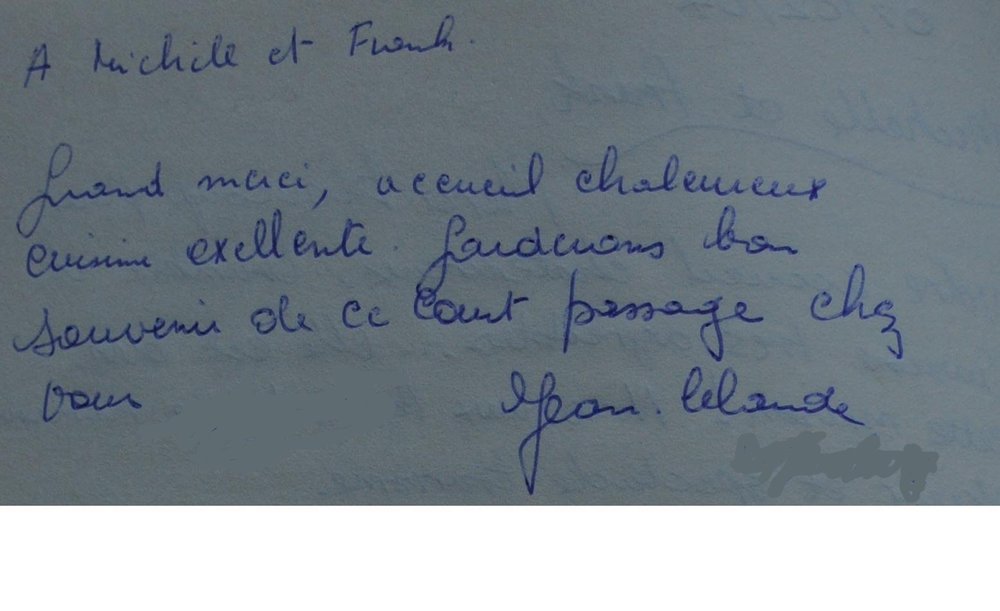 A Michèle et Frank.
Grand merci, accueil chaleureux
cuisine exellente. Garderons bon
souvenir de ce court passage chez
vous Jean.